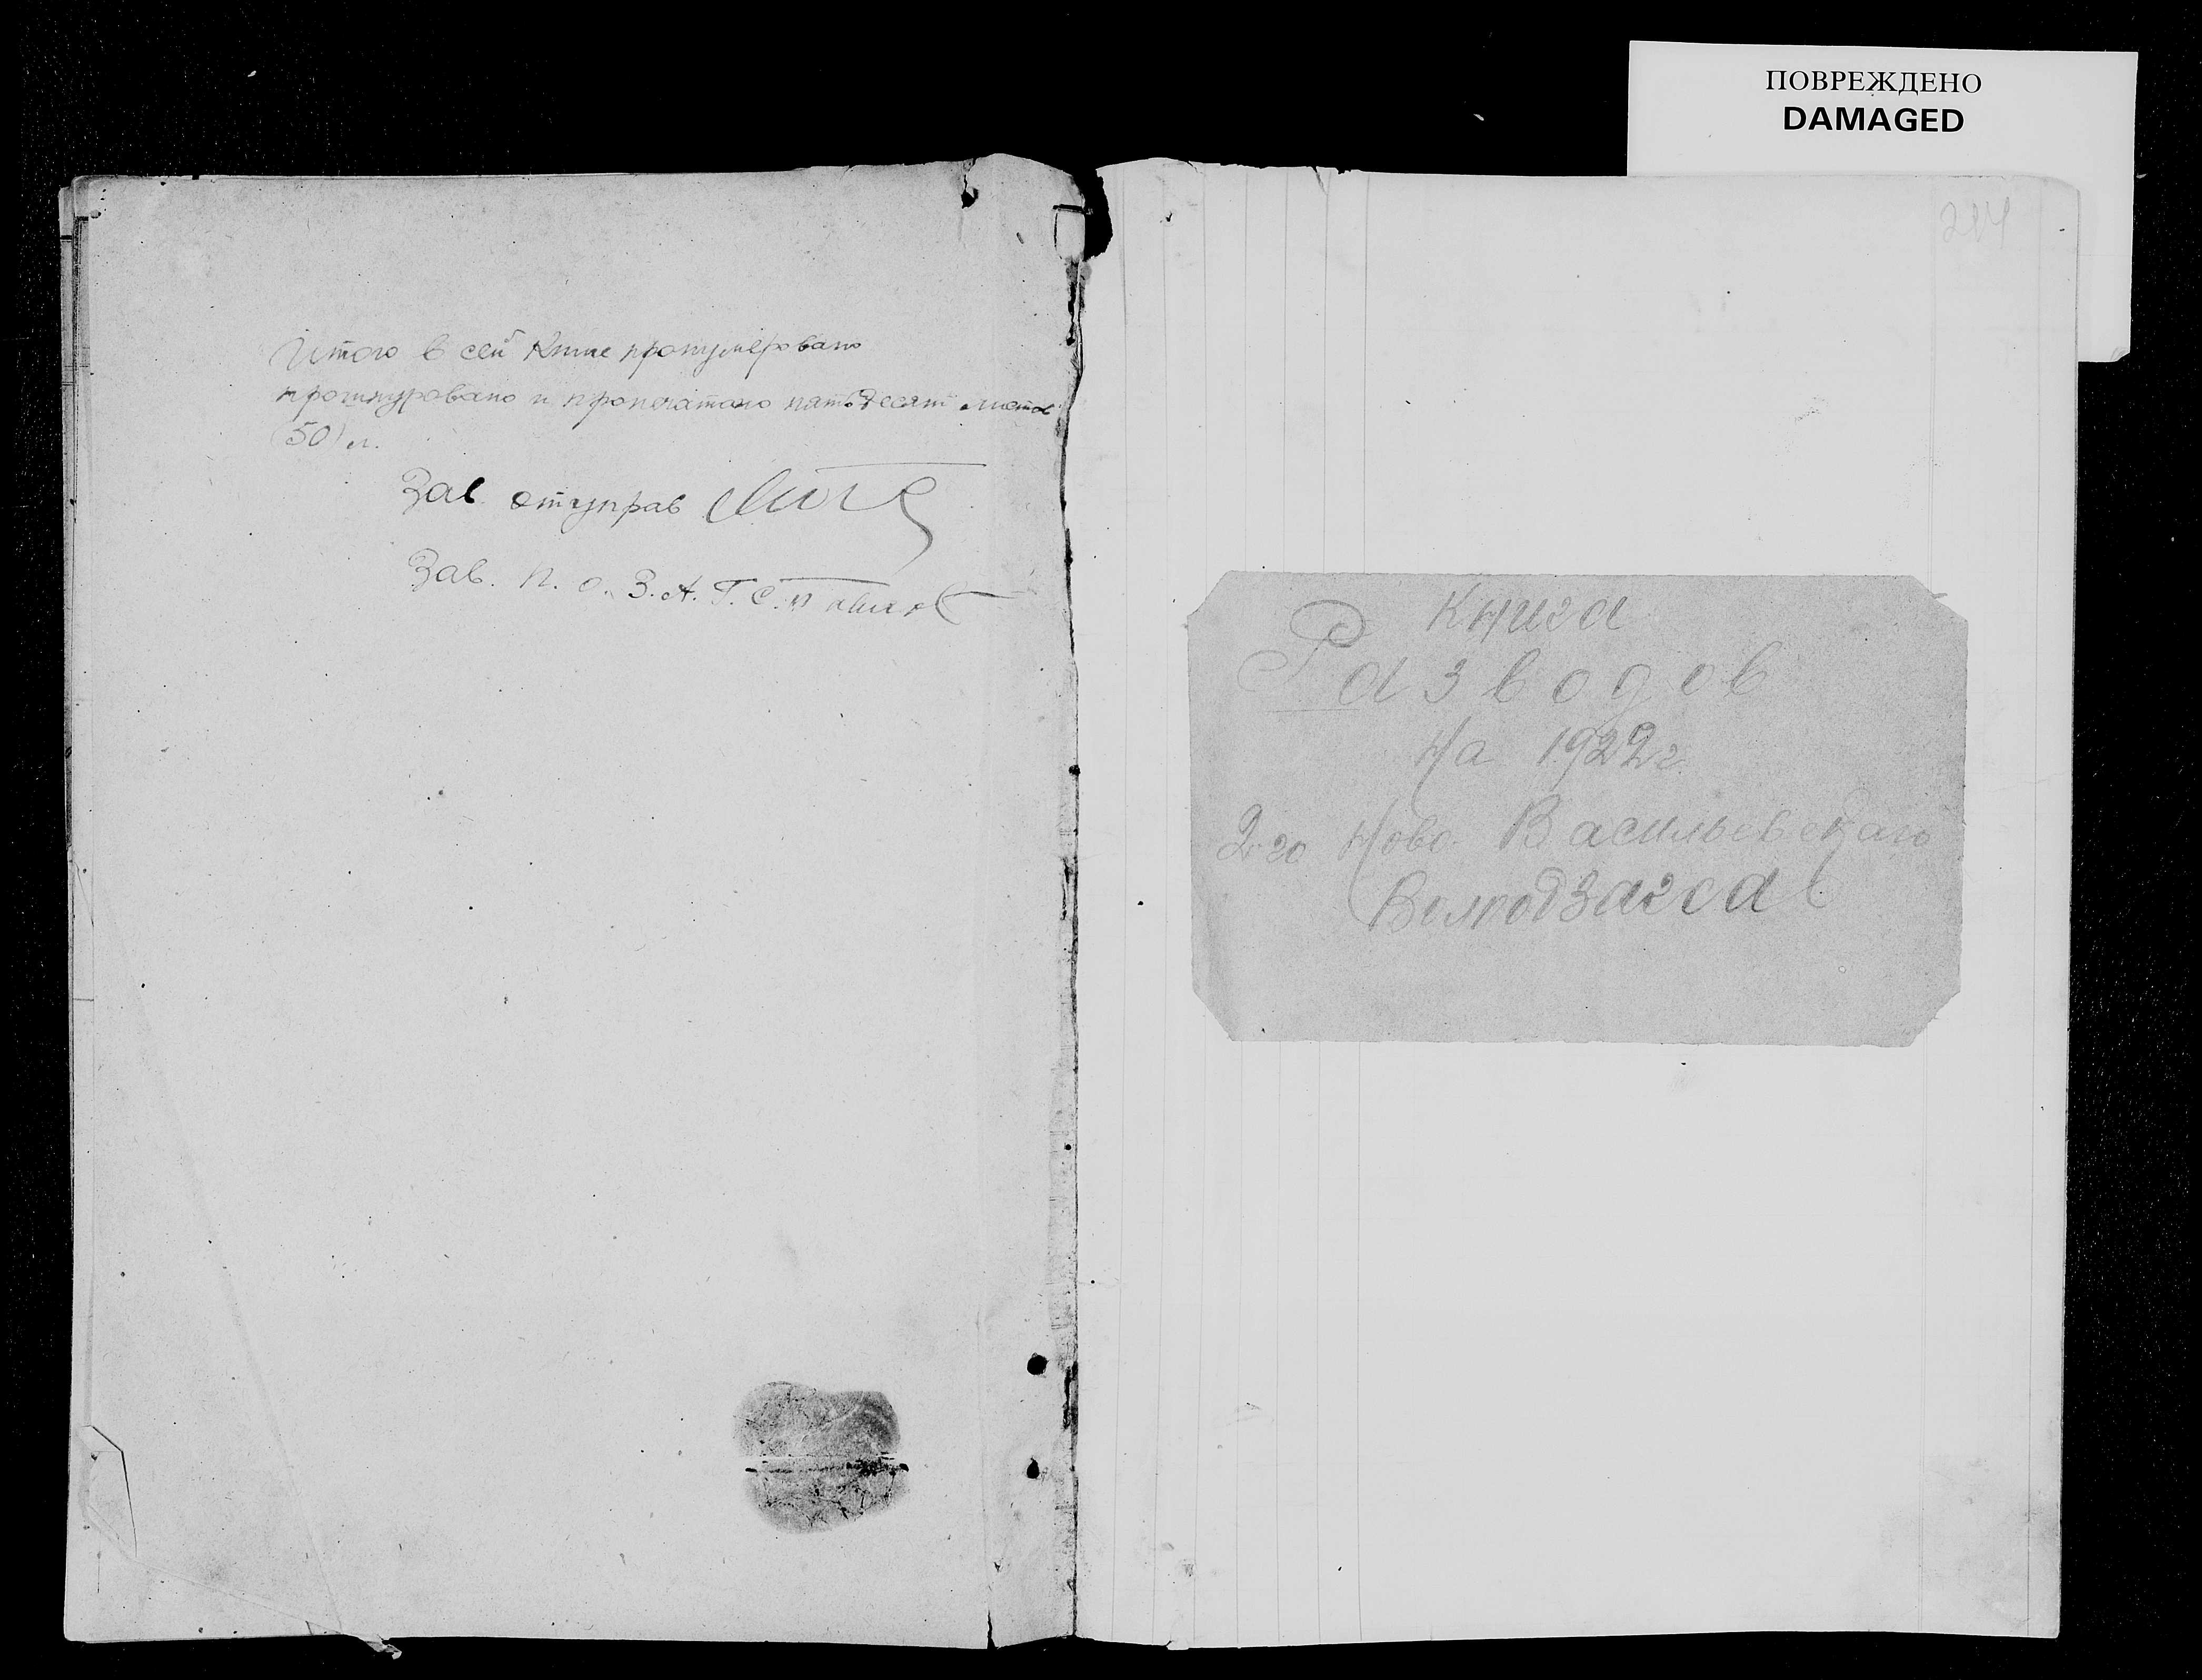 ПОВРЕЖДЕНО
DAMAGED
Итого в сей Книге пронумеровано
прошнуровано и пропечатано пятьдесят листов
(50) л.
Зав. отуправ
Зав. п. о. З. А. Г. С.
Книга
Разводов
На 1922 г.
2-го Ново-Васильевскаго
Волподзагса